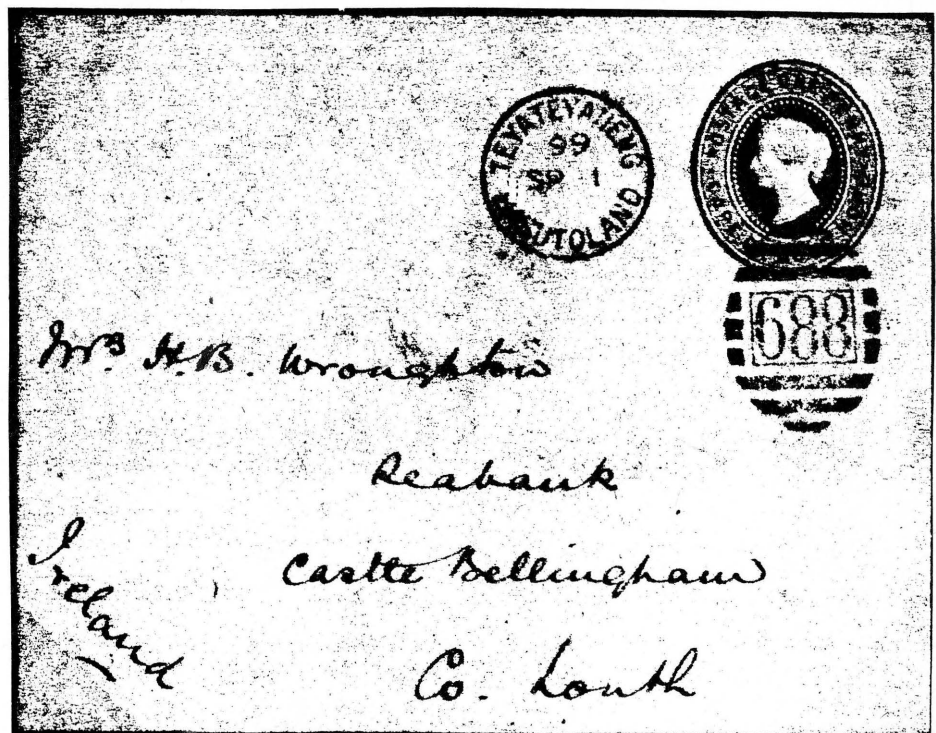 TEYATEYANENG
99
SP 1
BASUTOLAND
688
Mrs H.B. Wroughton
Seabank
Castle Bellingham
Co. Louth
Ireland